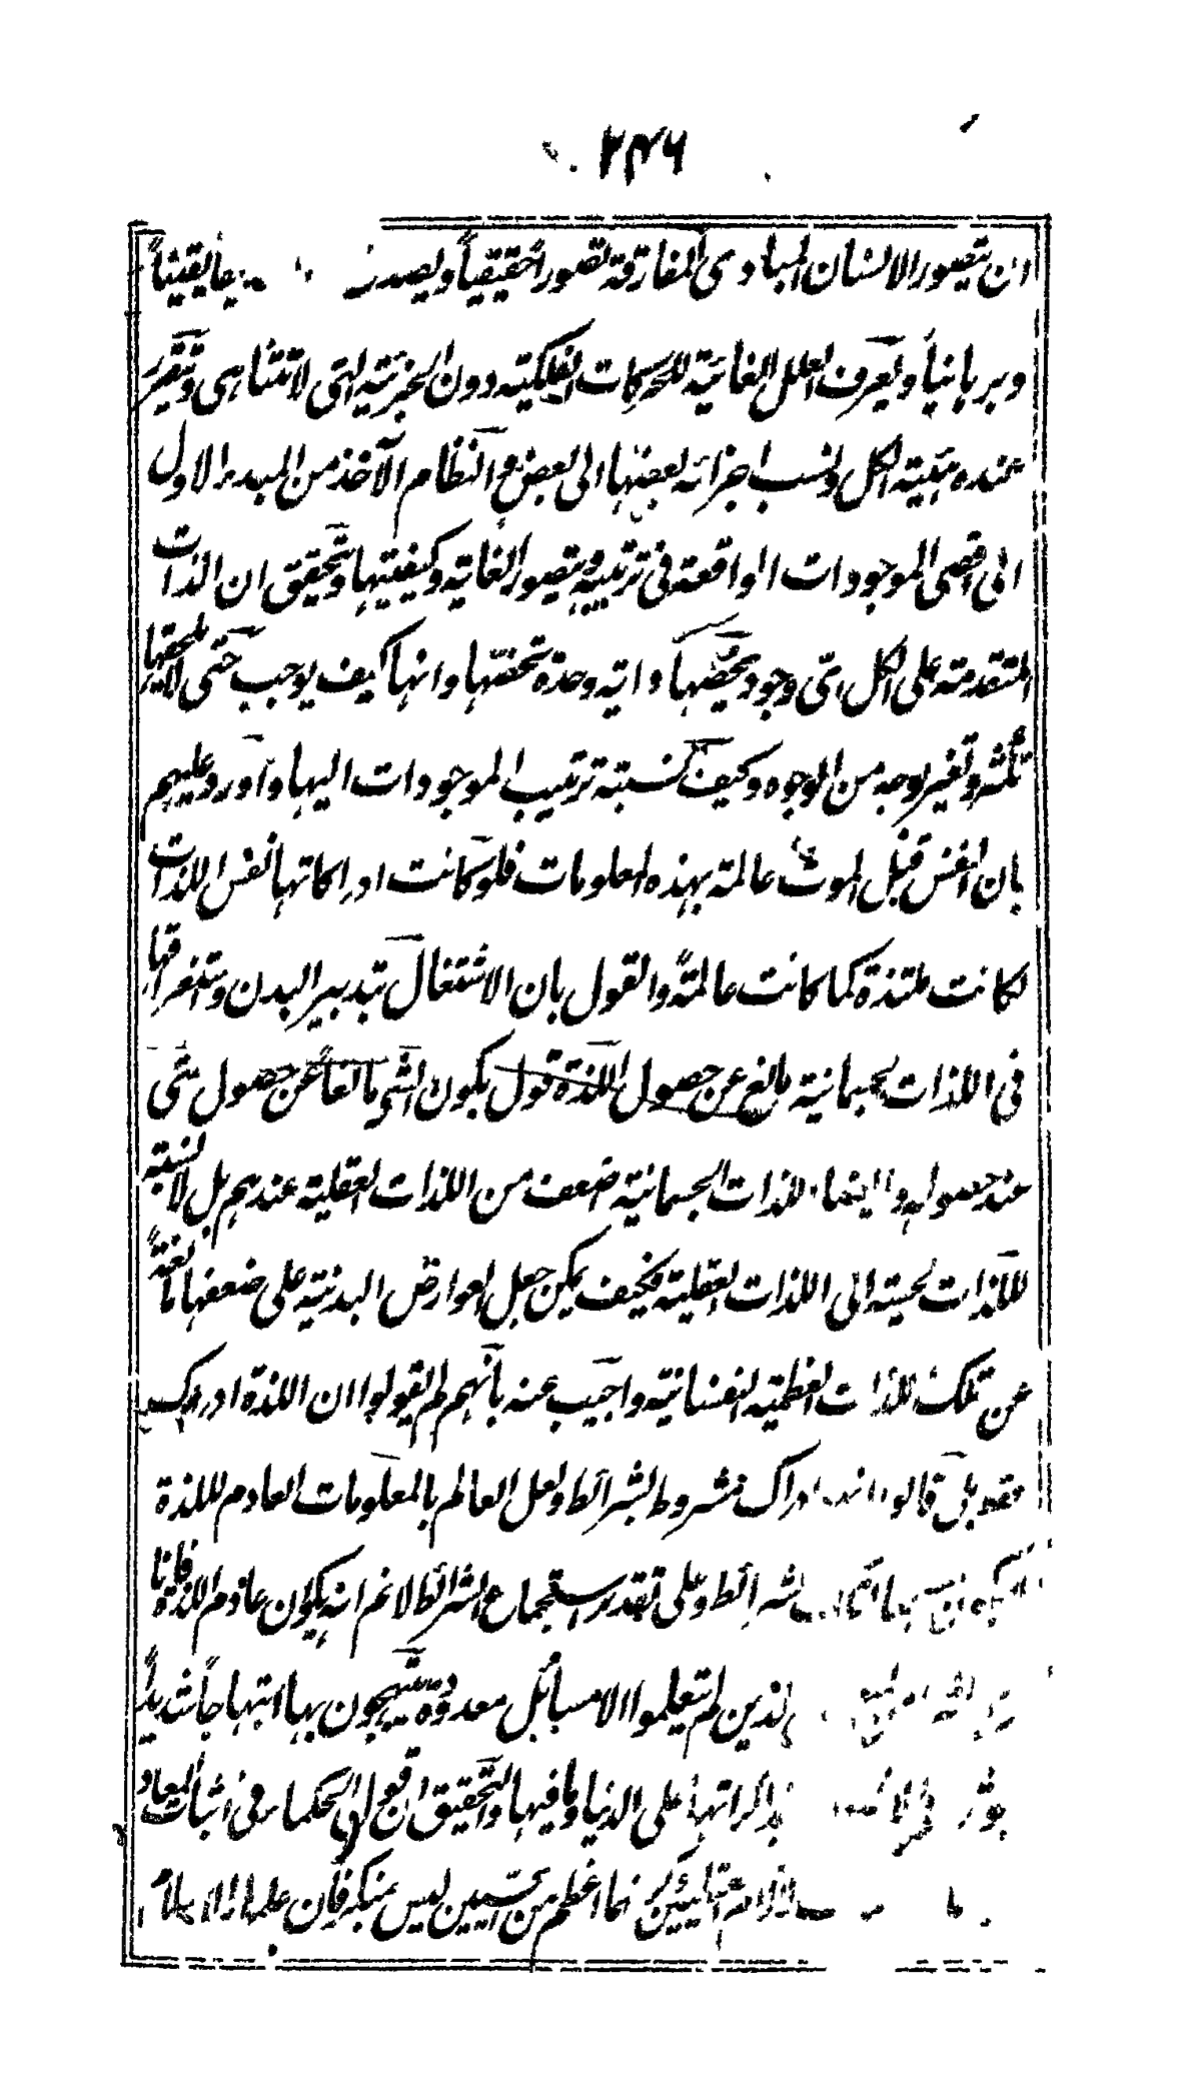 ۲۴۶
ان يتصور الانسان المبادى المفارقة تصوراً حقيقياً ويصدق يقينياً
وبرهانياً ويعرف العلل الغائية للحركات الفلكية دون الجزئية التى لا تتناهى وتتقرر
عنده هيئة الكل ونسب اجزائه بعضها الى بعض مع النظام الآخذ من المبدء الاول
الى اقصى الموجودات الواقعة فى ترتيبه ويتصور الغاية وكيفيتها ويتحقق ان الذات
المتقدمة على الكل اى وجود يخصها واية وحدة تخصها وانها كيف يوجب حتى لا يلحقها
تكثر وتغير بوجه من الوجوه وكيف نسبة ترتيب الموجودات اليها واورد عليهم
بان النفس قبل الموت عالمة بهذه المعلومات فلو كانت ادراكاتها نفس اللذات
لكانت ملتذة كما كانت عالمة والقول بان الاشتغال بتدبير البدن واستغراقها
فى اللذات الجسمانية مانع عن حصول اللذة قول بكون الشئ مانعاً عن حصول شئ
عند حصوله وايضا اللذات الجسمانية اضعف من اللذات العقلية عندهم بل لا نسبة
للذات الحسية الى اللذات العقلية فكيف يمكن جعل العوارض البدنية على ضعفها مانعة
عن تلك اللذات العظيمة النفسانية واجيب عنه بانهم لم يقولوا ان اللذة ادراك
فقط بل قالوا ادراك مشروط بشرائط ولعل العالم بالمعلومات العادم للذة
الشرائط وعلى تقدير استجماع الشرائط لا نم انه يكون عادم اللذة فانا
الذين لم يتعلموا الا مسائل معدودة يبتهجون بها ابتهاجاً شديداً
بوثر مذاكراتها على الدنيا وما فيها والتحقيق ان قول الحكماء فى اثبات المعاد
اعظم من الحسيين ليس بمنكر فان علماء الاسلام